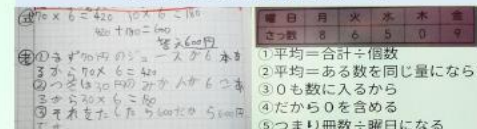 式 70×6=420 30×6=180
420+180=600
答え600円
考 ①まず70円のジュースが6本あ
るから70×6=420
②つぎは30円のみかんが6こあ
るから30×6=180
③それをたしたら600だから600円
です
曜日 月 火 水 木 金
さっ数 8 6 5 0 9
①平均=合計÷個数
②平均=ある数を同じ量になら
③0も数に入るから
④だから0を含める
⑤つまり冊数÷曜日になる